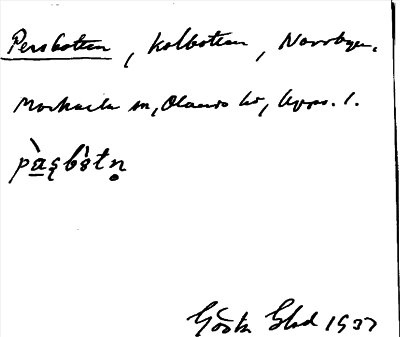 Persbotten, Kolbotten, Norrbyn.
Morkarla sn, Olands hd, Upps. l.
pàa̱ʂbòtn̥
Gösta Blad 1937